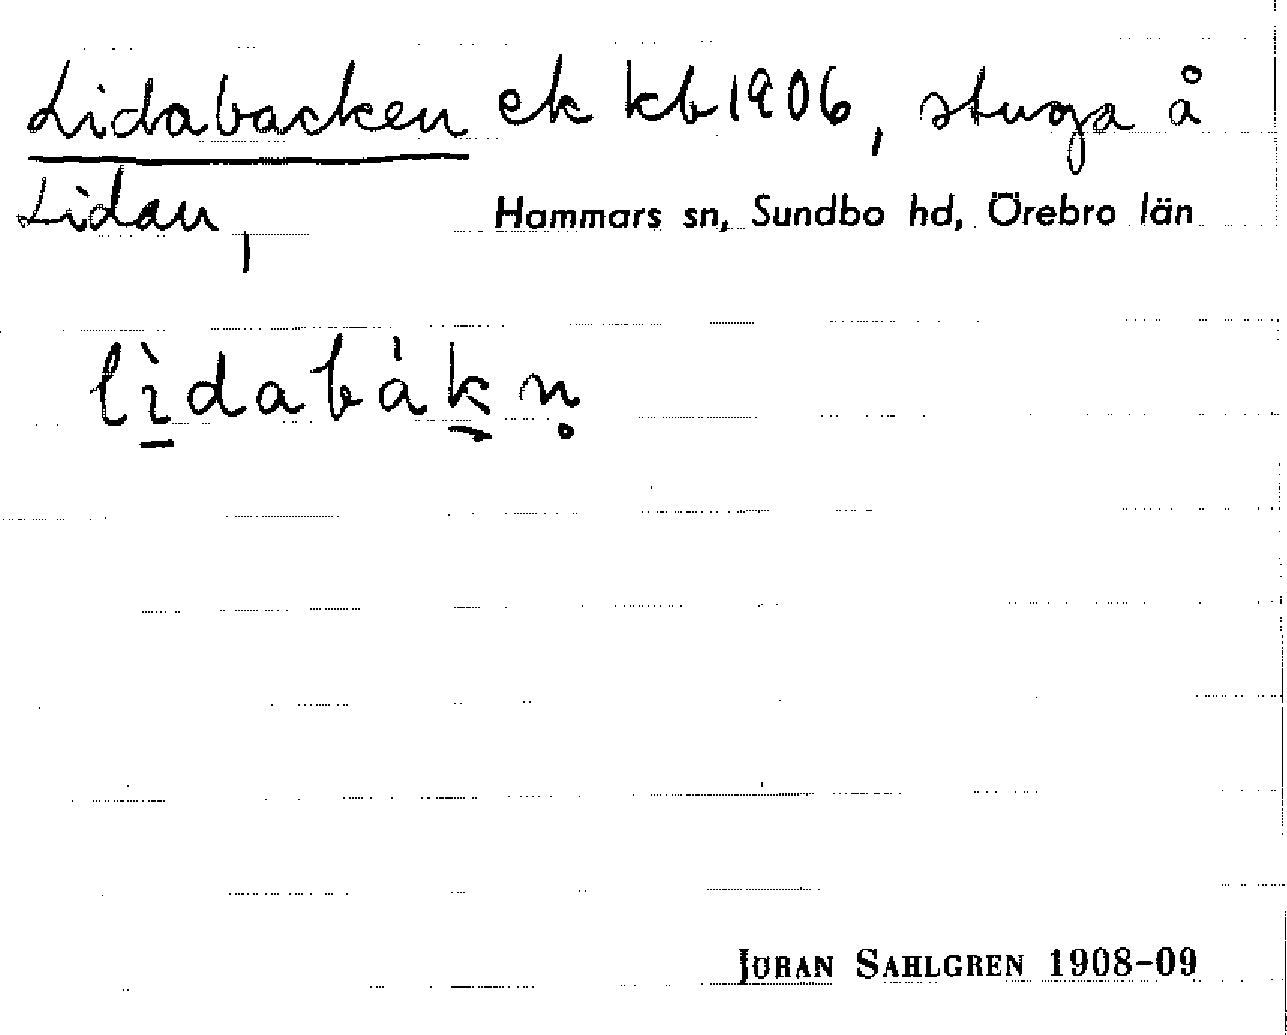 Lidabacken ek kb 1906, stuga å
Lidan, Hammars sn, Sundbo hd, Örebro län
lìdabàk n̥
JÖRAN SAHLGREN 1908-09